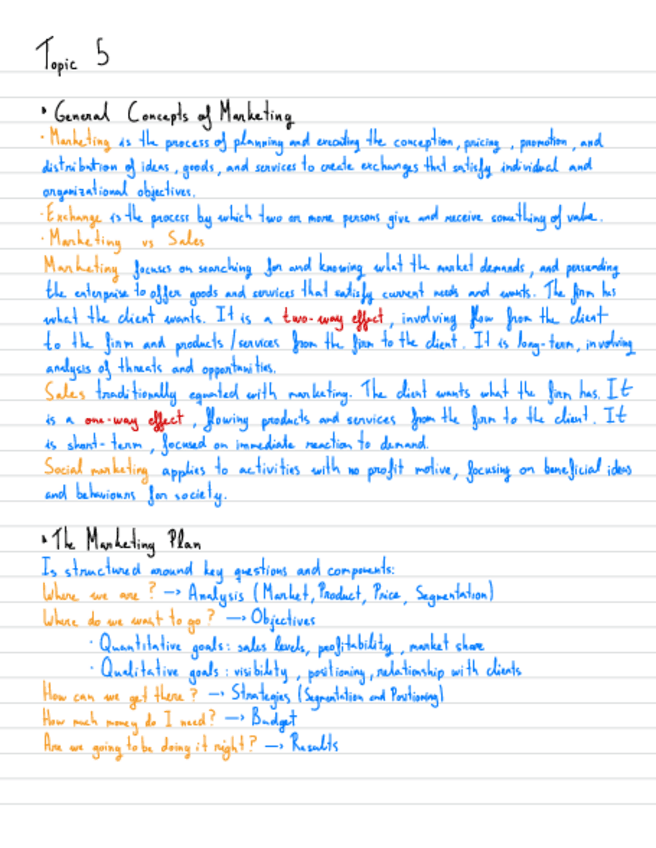 Topic 5
• General Concepts of Marketing
· Marketing is the process of planning and executing the conception, pricing, promotion, and
distribution of ideas, goods, and services to create exchanges that satisfy individual and
organizational objectives.
· Exchange is the process by which two or more persons give and receive something of value.
· Marketing vs Sales
Marketing focuses on searching for and knowing what the market demands, and persuading
the enterprise to offer goods and services that satisfy current needs and wants. The firm has
what the client wants. It is a two-way effect, involving flow from the client
to the firm and products/services from the firm to the client. It is long-term, involving
analysis of threats and opportunities.
Sales traditionally equated with marketing. The client wants what the firm has. It
is a one-way effect, flowing products and services from the firm to the client. It
is short-term, focused on immediate reaction to demand.
Social marketing applies to activities with no profit motive, focusing on beneficial ideas
and behaviours for society.
• The Marketing Plan
Is structured around key questions and components:
Where we are? → Analysis (Market, Product, Price, Segmentation)
Where do we want to go? → Objectives
· Quantitative goals: sales levels, profitability, market share
· Qualitative goals: visibility, positioning, relationship with clients
How can we get there? → Strategies (Segmentation and Positioning)
How much money do I need? → Budget
Are we going to be doing it right? → Results